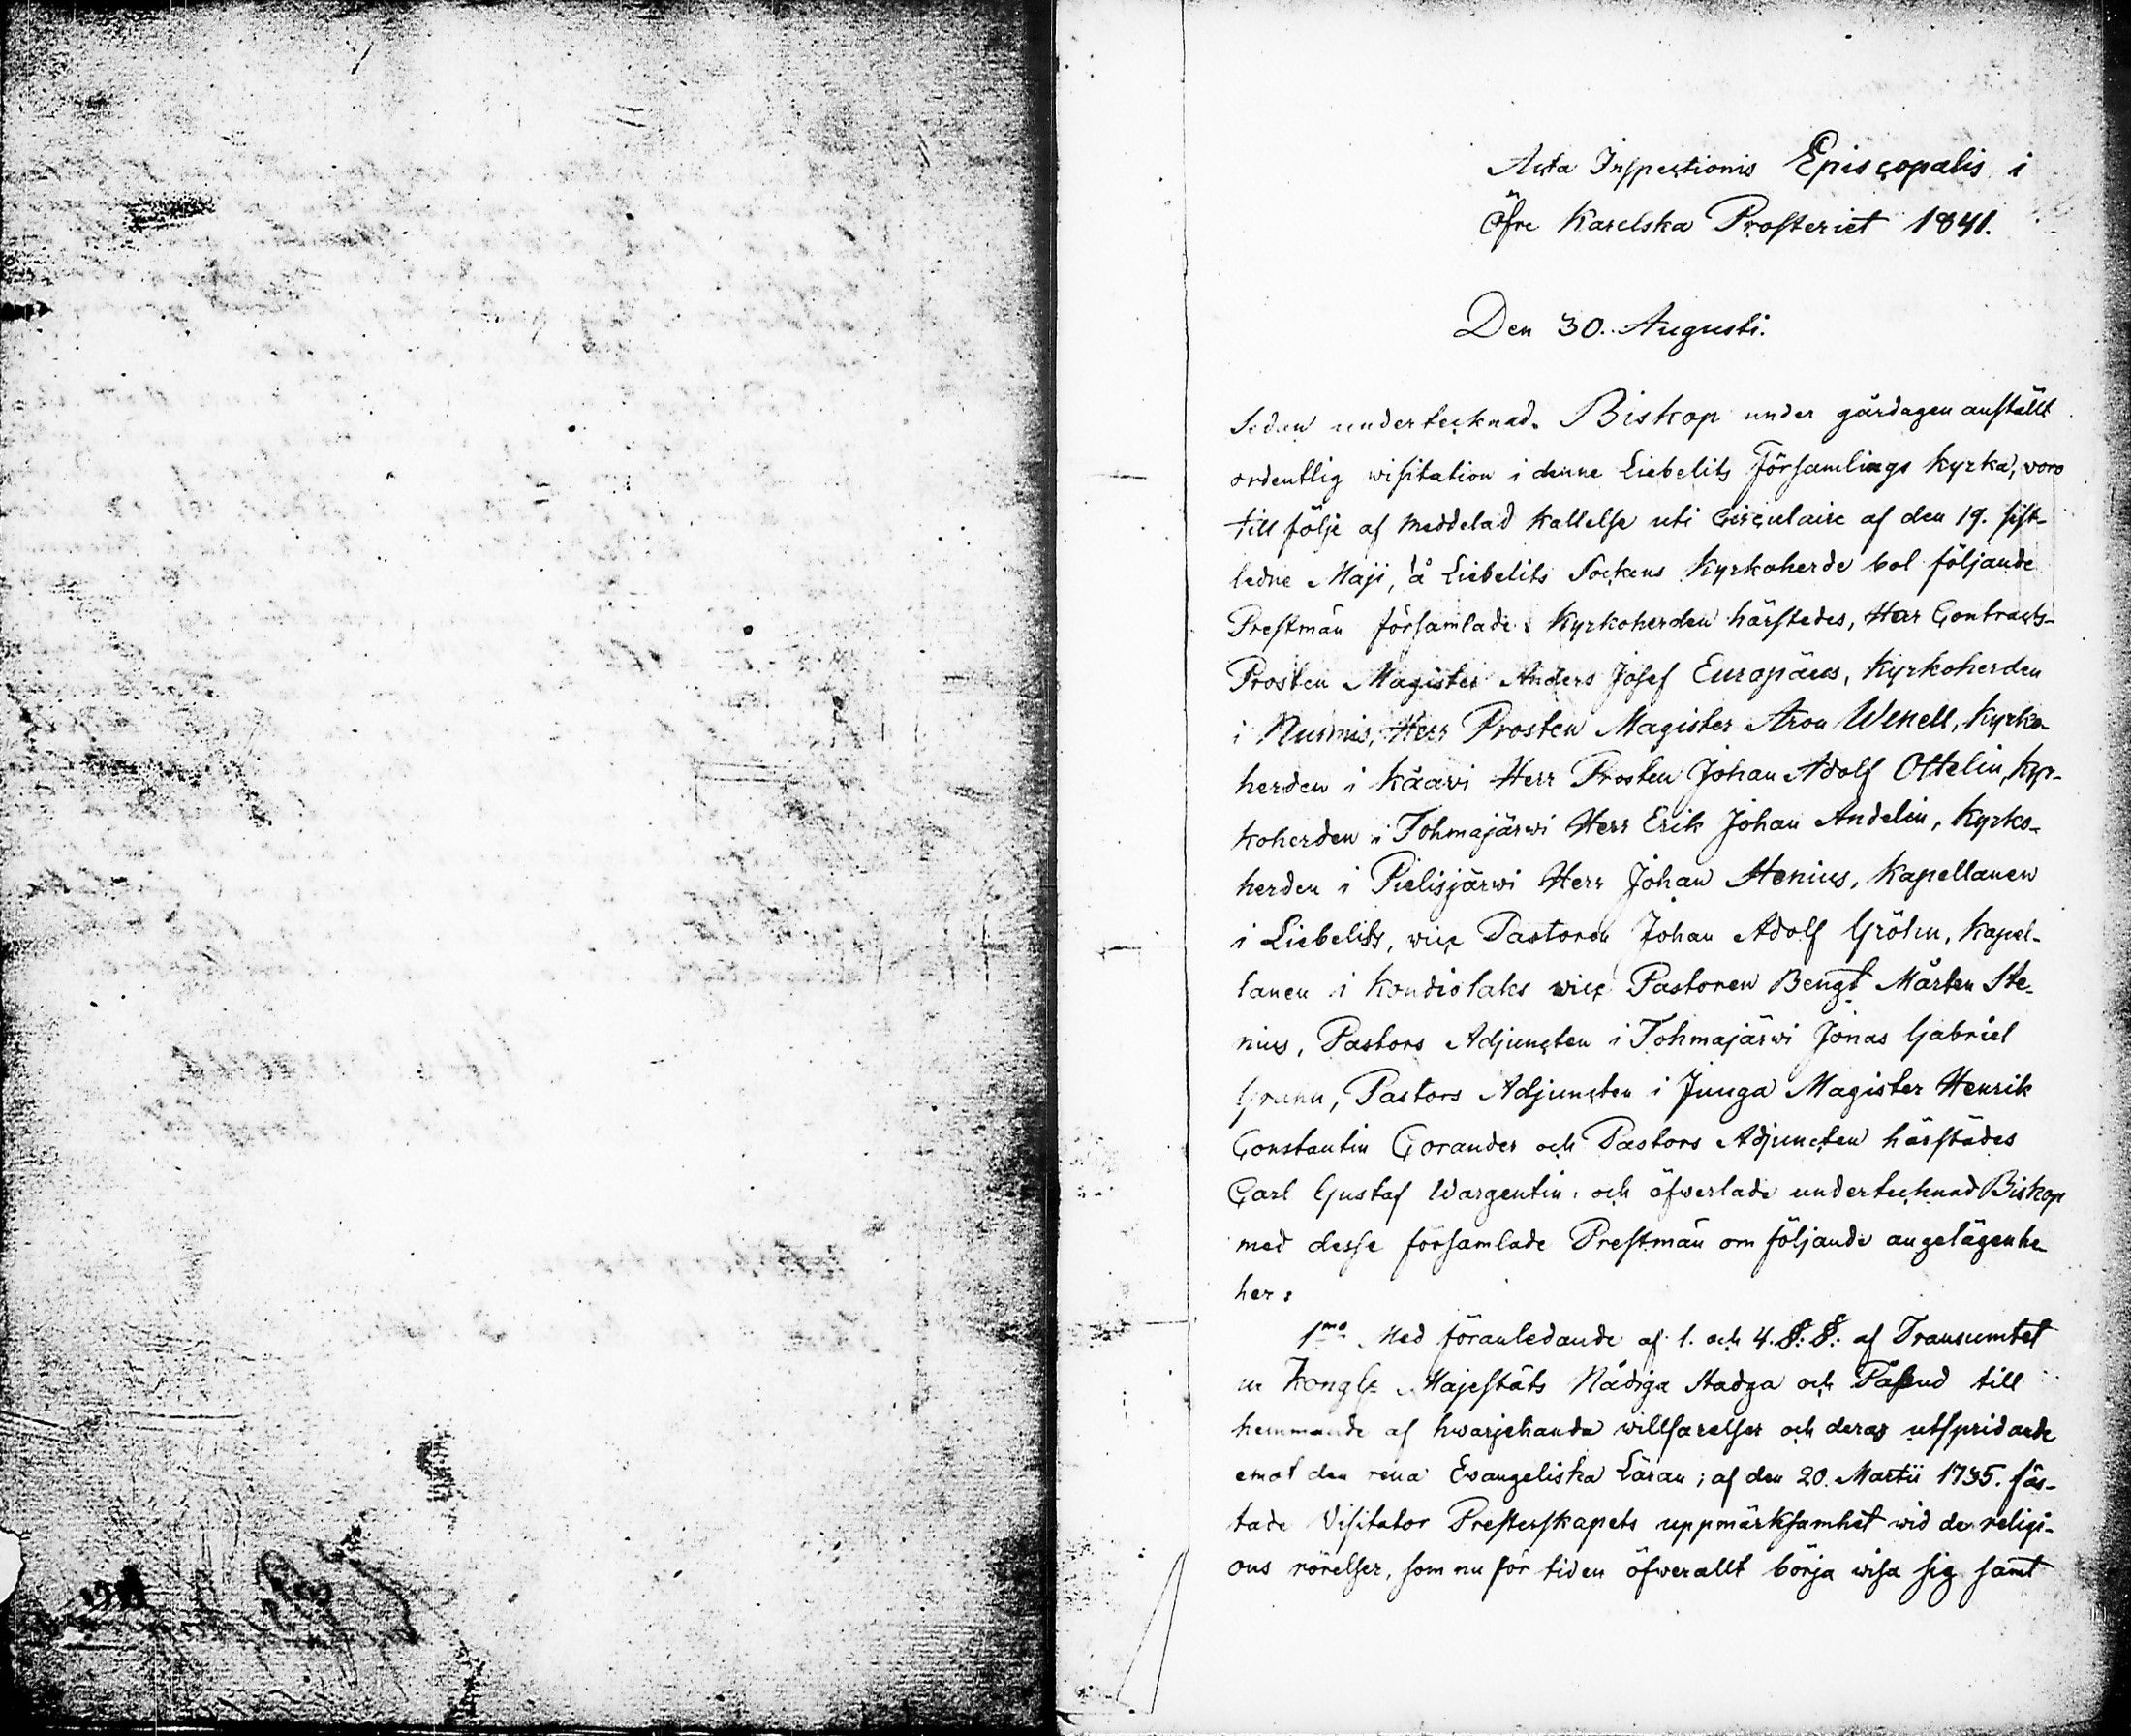 Acta Inspectionis Episcopalis i
Öfre Karelska Prosteriet 1841.
Den 30. Augusti.
Sedan undertecknad Biskop under gårdagen anställt
ordentlig visitation i denne Liebelits Församlings Kyrka, voro
till följe af meddelad kallelse uti Circulaire af den 19. sist-
ledne Maji, å Liebelits Sockens Kyrkoherde bol följande
Prestmän församlade: Kyrkoherden härstedes, Herr Contracts-
Prosten Magister Anders Josef Europäus, Kyrkoherden
i Nurmis, Herr Prosten Magister Aron Wenell, Kyrko-
herden i Kaavi Herr Prosten Johan Adolf Ottelin, Kyr-
koherden i Tohmajärwi Herr Erik Johan Andelin, Kyrko-
herden i Pielisjärwi Herr Johan Stenius, Kapellanen
i Liebelits, vice Pastoren Johan Adolf Gröhn, Kapel-
lanen i Kondiolaks vice Pastoren Bengt Mårten Ste-
nius, Pastors Adjuncten i Tohmajärwi Jonas Gabriel
Pastors Adjuncten i Juuga Magister Henrik
Constantin Corander och Pastors Adjuncten härstädes
Carl Gustaf Wargentin, och öfwerlade undertecknad Biskop
med desse församlade Prestmän om följande angelägenhe
her:
1mo Med föranledande af 1. och 4. §.§. af Transumtet
ur Kongl. Majestäts Nådiga Stadga och Påbud till
hemmande af hwarjehanda willfarelser och deras utspridande
emot den rena Evangeliska Läran; af den 20. Martii 1735. fäs-
tade Visitator Presterskapets uppmärksamhet wid de religi-
ons rörelser, som nu för tiden öfwerallt börja wisa sig samt